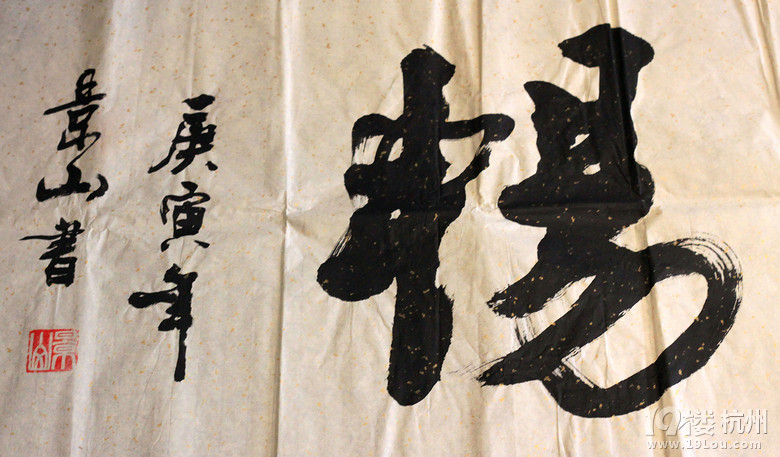 暢
庚寅年
景山書
景山
19楼 杭州
www.19lou.com